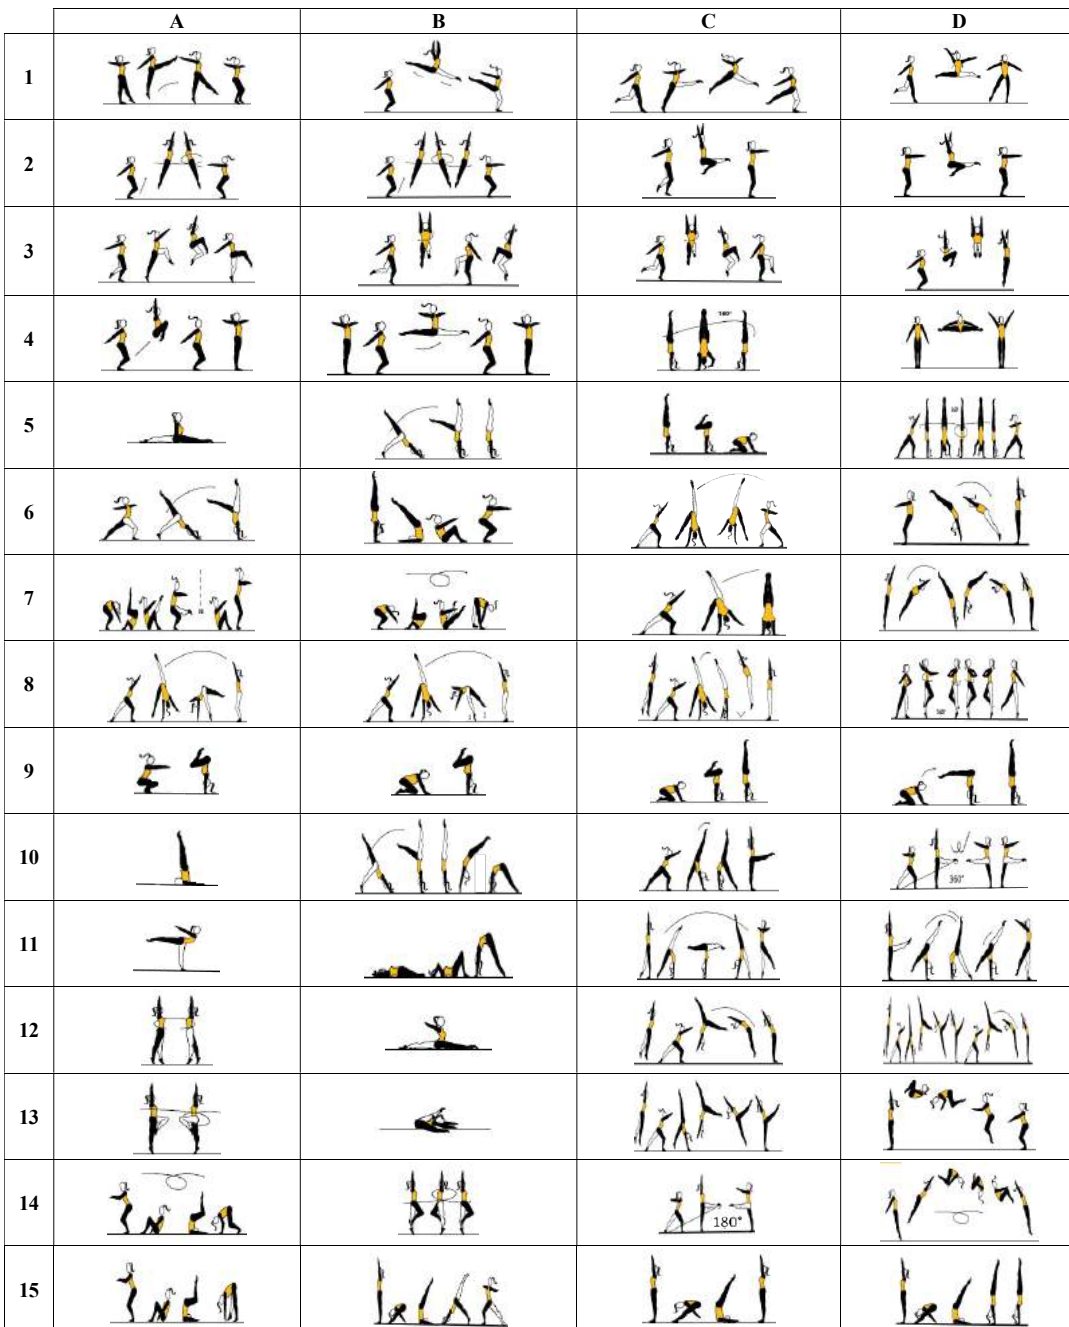 A B C D
1
2
3
4
180°
5
6
7
8
9
10
360°
11
12
13
14
180°
15